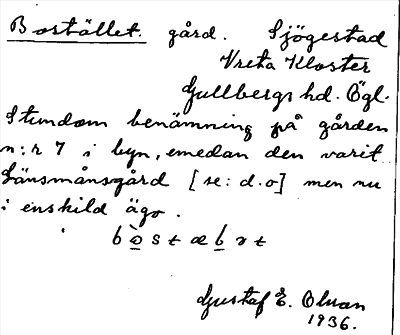 Bostället. gård. Sjögestad
Vreta Kloster
Gullbergs hd. Ögl.
Stundom benämning på gården
n:r 7 i byn, emedan den varit
Länsmånsgård [se: d.o] men nu
i enskild ägo.
Gustaf E. Olman
1936.